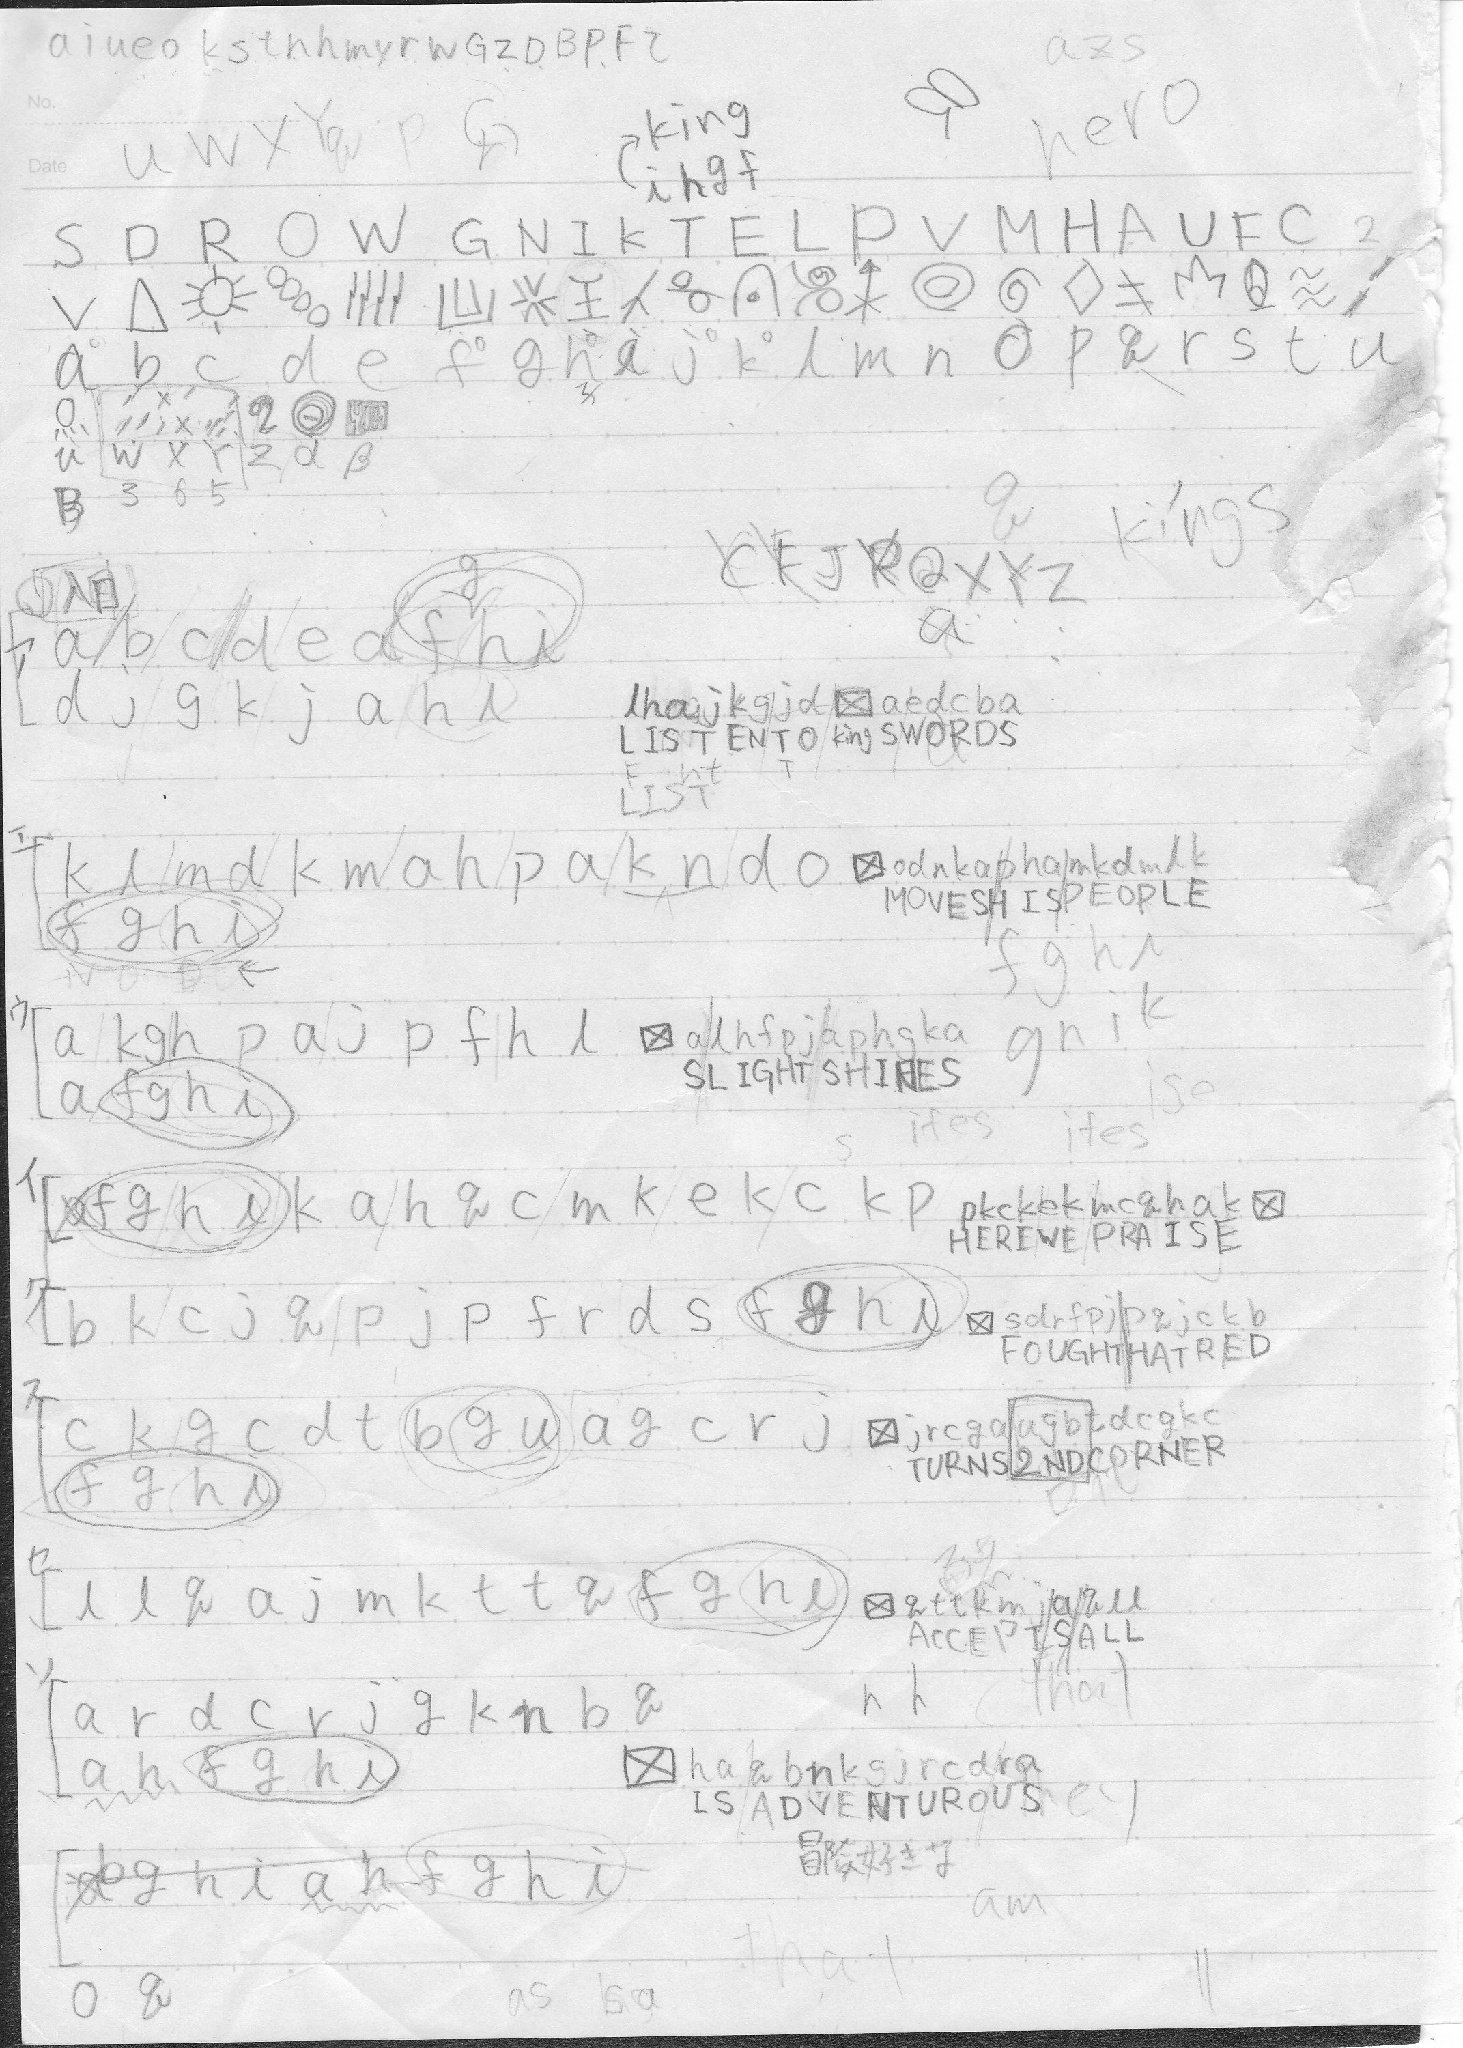 aiueokstnhmyrwGZDBPFZ
azs
No.
Date
u W X Y q p G
king
ihgf
hero
S D R O W G N I K T E L P V M H A U F C 2
a b c d e f g h i j k l m n o p q r s t u
u W X Y Z α β
B 3 6 5
q
kings
C F J R Q X Y Z
a
g
a b c d e a f h i
d j g k j a h l
lhajkgjd aedcba
LISTENTO king SWORDS
LIST
エ
k l m d k m a h p a k n d o
odnkaphamkdmlk
MOVESHISPEOPLE
f g h i
f g h i
ウ
a k g h p a j p f h l
alhfpjaphgka
SLIGHTSHINES
gnik
a f g h i
ise
s
ites
ites
イ
f g h i k a h q c m k e k c k p
pkckekmcqhak
HEREWEPRAISE
b k c j q p j p f r d s f g h i
sdrfpjpqjckb
FOUGHTHATRED
ス
c k g c d t b g u a g c r j
jrcgaugbtdcgkc
TURNS2NDCORNER
f g h i
セ
l l q a j m k t t q f g h i
qttkmjaqll
ACCEPTSALL
ソ
a r d c r j g k n b q
h h
that
a h f g h i
haqbnkgjrcdra
ISADVENTUROUS
冒険好きな
b g h i a h f g h i
am
that
o q
as
sa